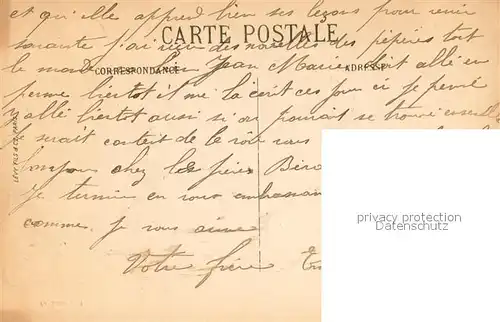 et qu'elle apprend bien ses leçons pour venir
CARTE POSTALE
savante j'ai reçu des nouvelles des pépères tout
le monde bien Jean Marie doit allé en
CORRESPONDANCE
ADRESSE
perme bientot il me la écrit ces jour ci je pense
y allé bientot aussi si on pouvait se trouvé
je serait content de le voir
chez les frères
Je termine en vous embrassant
comme je vous aime
Votre frère
privacy protection
Datenschutz